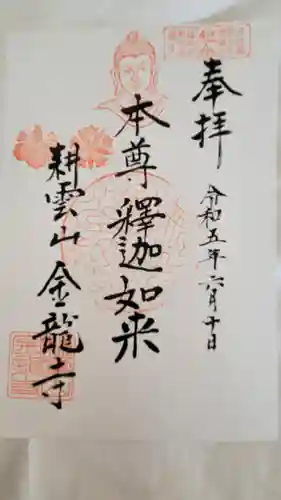 奉拝
令和五年六月十日
本尊 釋迦如来
耕雲山 金龍寺